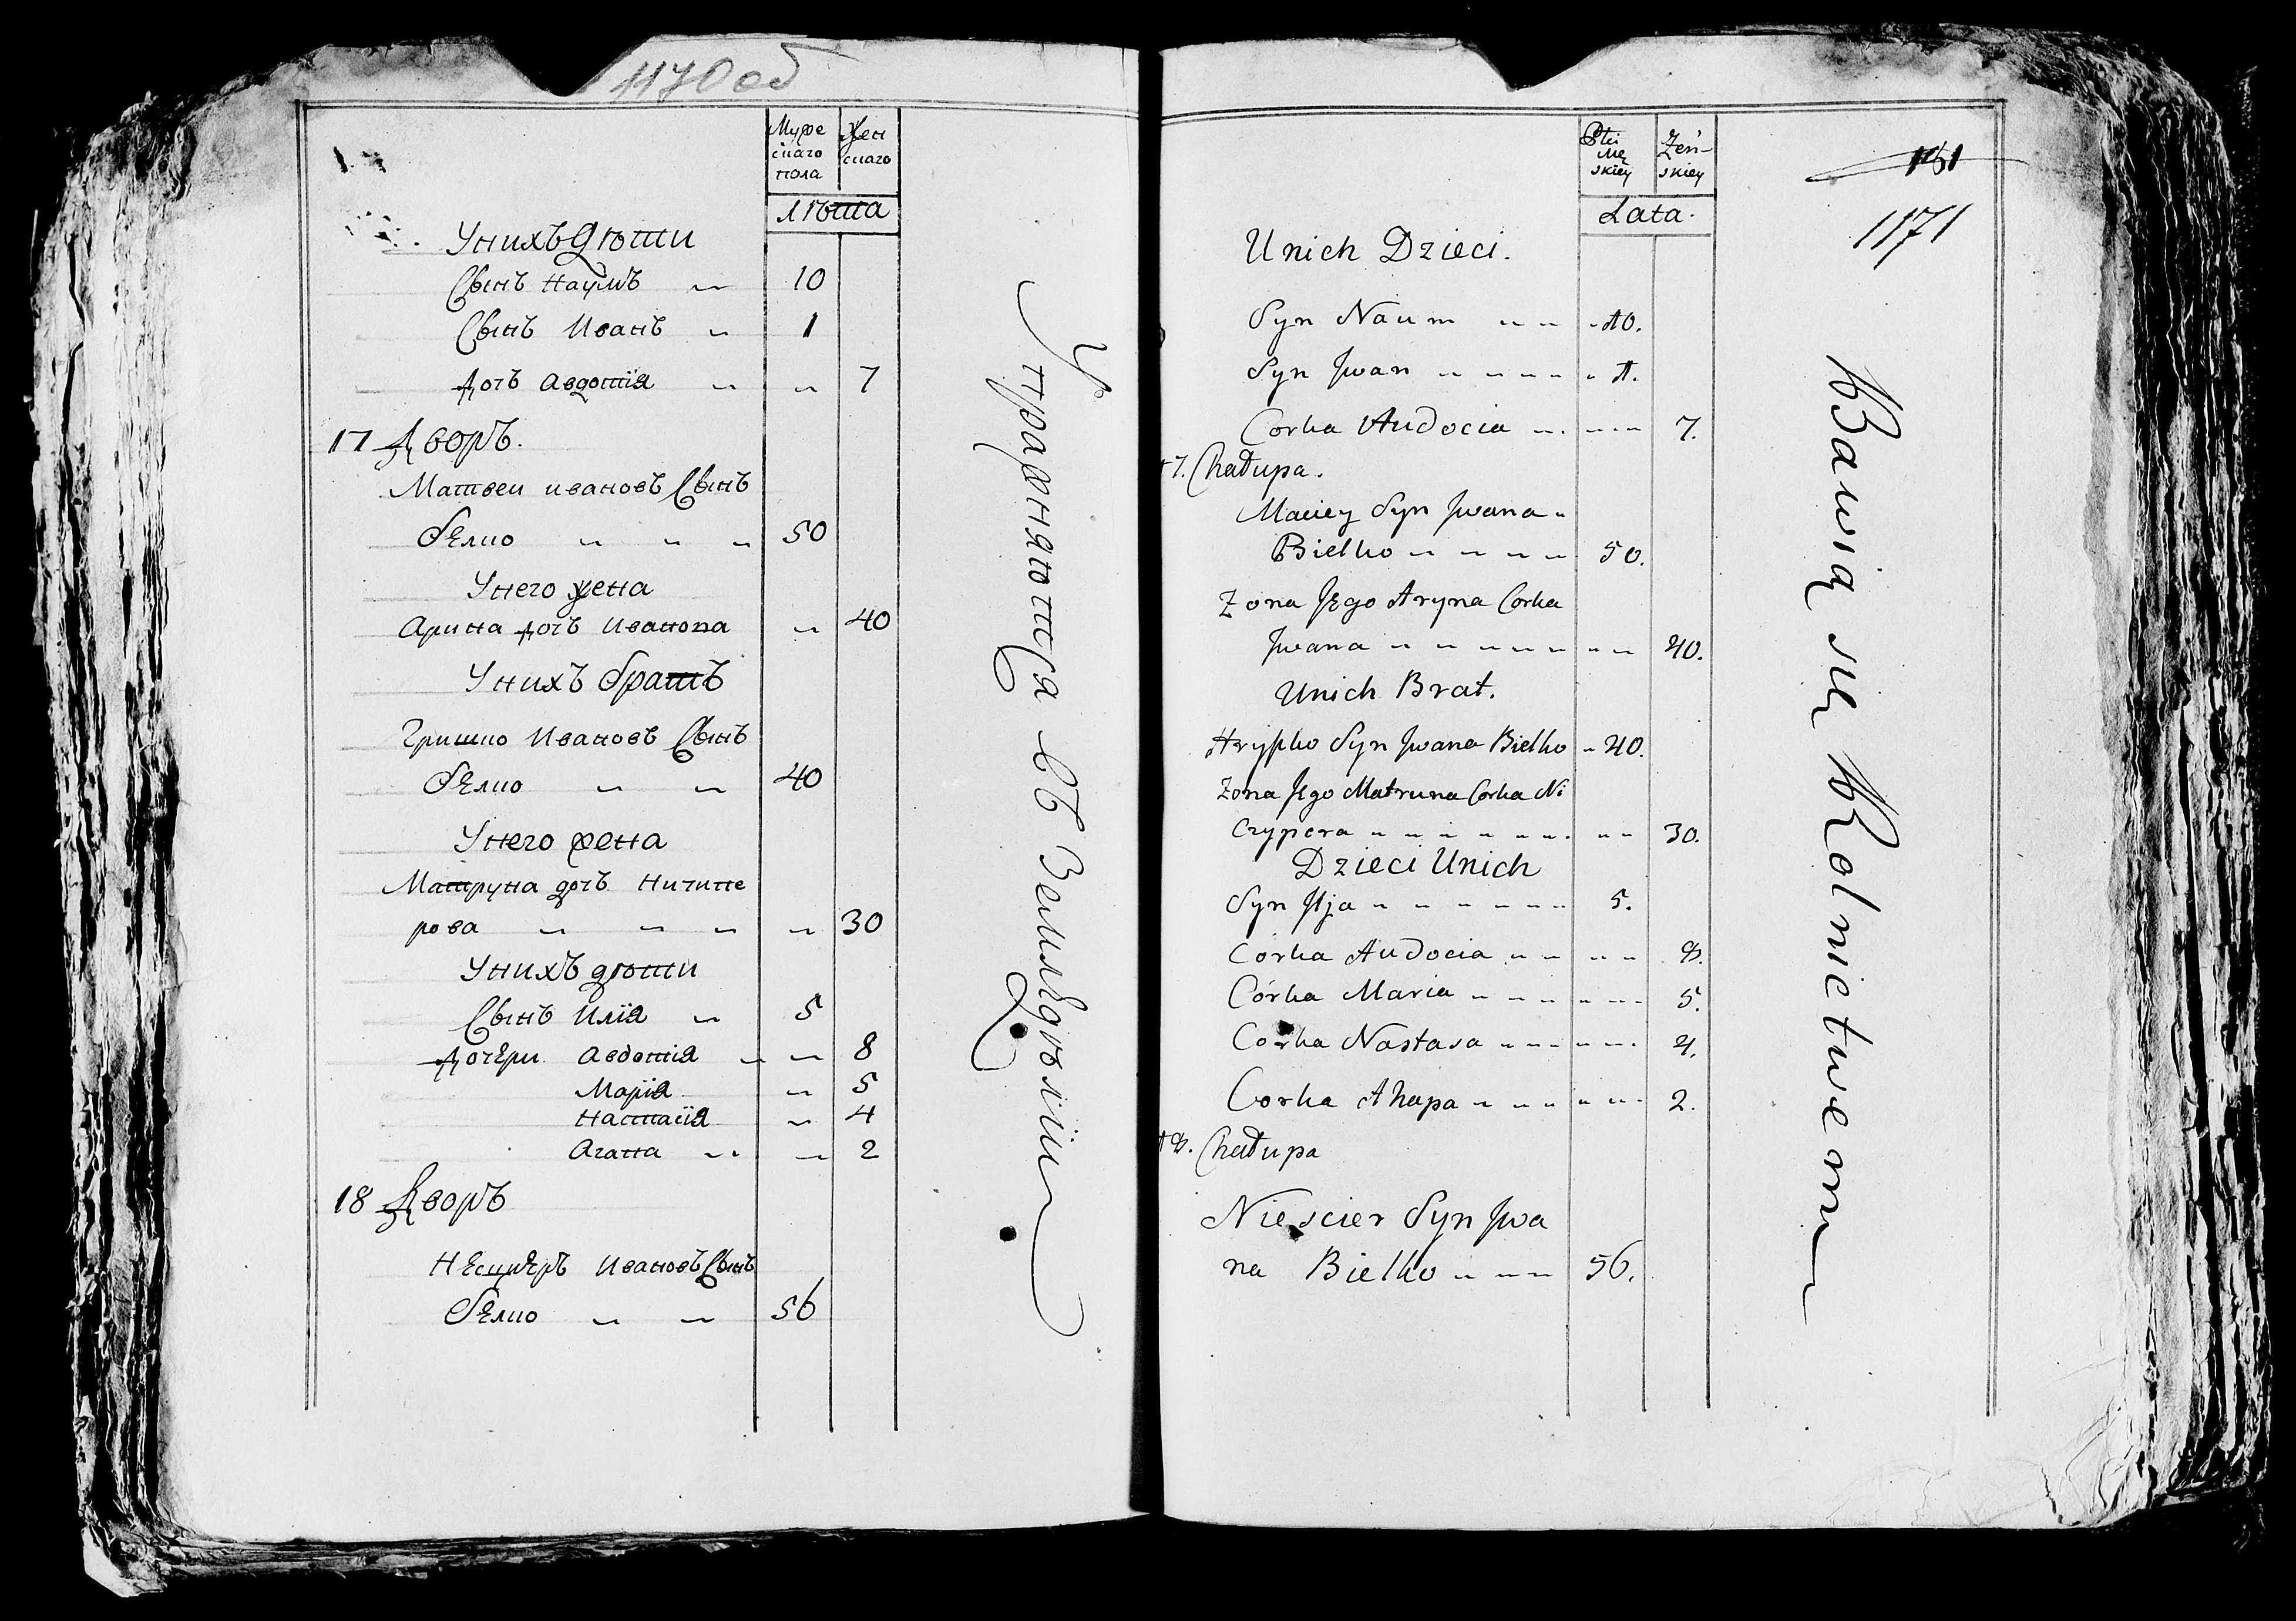 1170об
Муже
скаго
пола
Жен
скаго
лѣта
У нихъ дѣти
Сынъ Наумъ " 10
Сынъ Иванъ " 1
Дочь Авдотiя " " 7
17 Дворъ.
Матвеи ивановъ Сынъ
белко " " " 50
У него жена
Арина дочь Иванова " 40
У нихъ братъ
Гришко Ивановъ Сынъ
белко " " 40
У него жена
Матруна дочь Ничипе
рова " " " " 30
У нихъ дѣти
Сынъ Илiя " 5
Дочери Авдотiя " " 8
Марiя " 5
Настасiя " 4
Агапа " " 2
18 Дворъ
Несцеръ Ивановъ Сынъ
белко " " 56
Упражняются въ Земледѣлiи
Płci
Mę
skiey
Żeń-
skiey
Lata.
181
1171
Unich Dzieci.
Syn Naum " " " 10.
Syn Jwan " " " " " 1.
Corka Audocia " " 7.
17. Chałupa.
Maciey Syn Jwana "
Bielko " " " " 50.
Zona Jego Aryna Corka
Jwana " " " " " " " " 40.
Unich Brat.
Hryszko Syn Jwana Bielko " 40.
Zona Jego Matruna Corka Ni
czypera " " " " " " " " " 30.
Dzieci Unich
Syn Ilja " " " " " " 5.
Córka Audocia " " " " 8.
Córka Maria " " " " " " 5.
Corka Nastasa " " " " " " 4.
Corka Ahapa " " " " " " 2.
18. Chałupa
Niescier Syn Jwa
na Bielko " " " 56.
Bawią się Rolnictwem